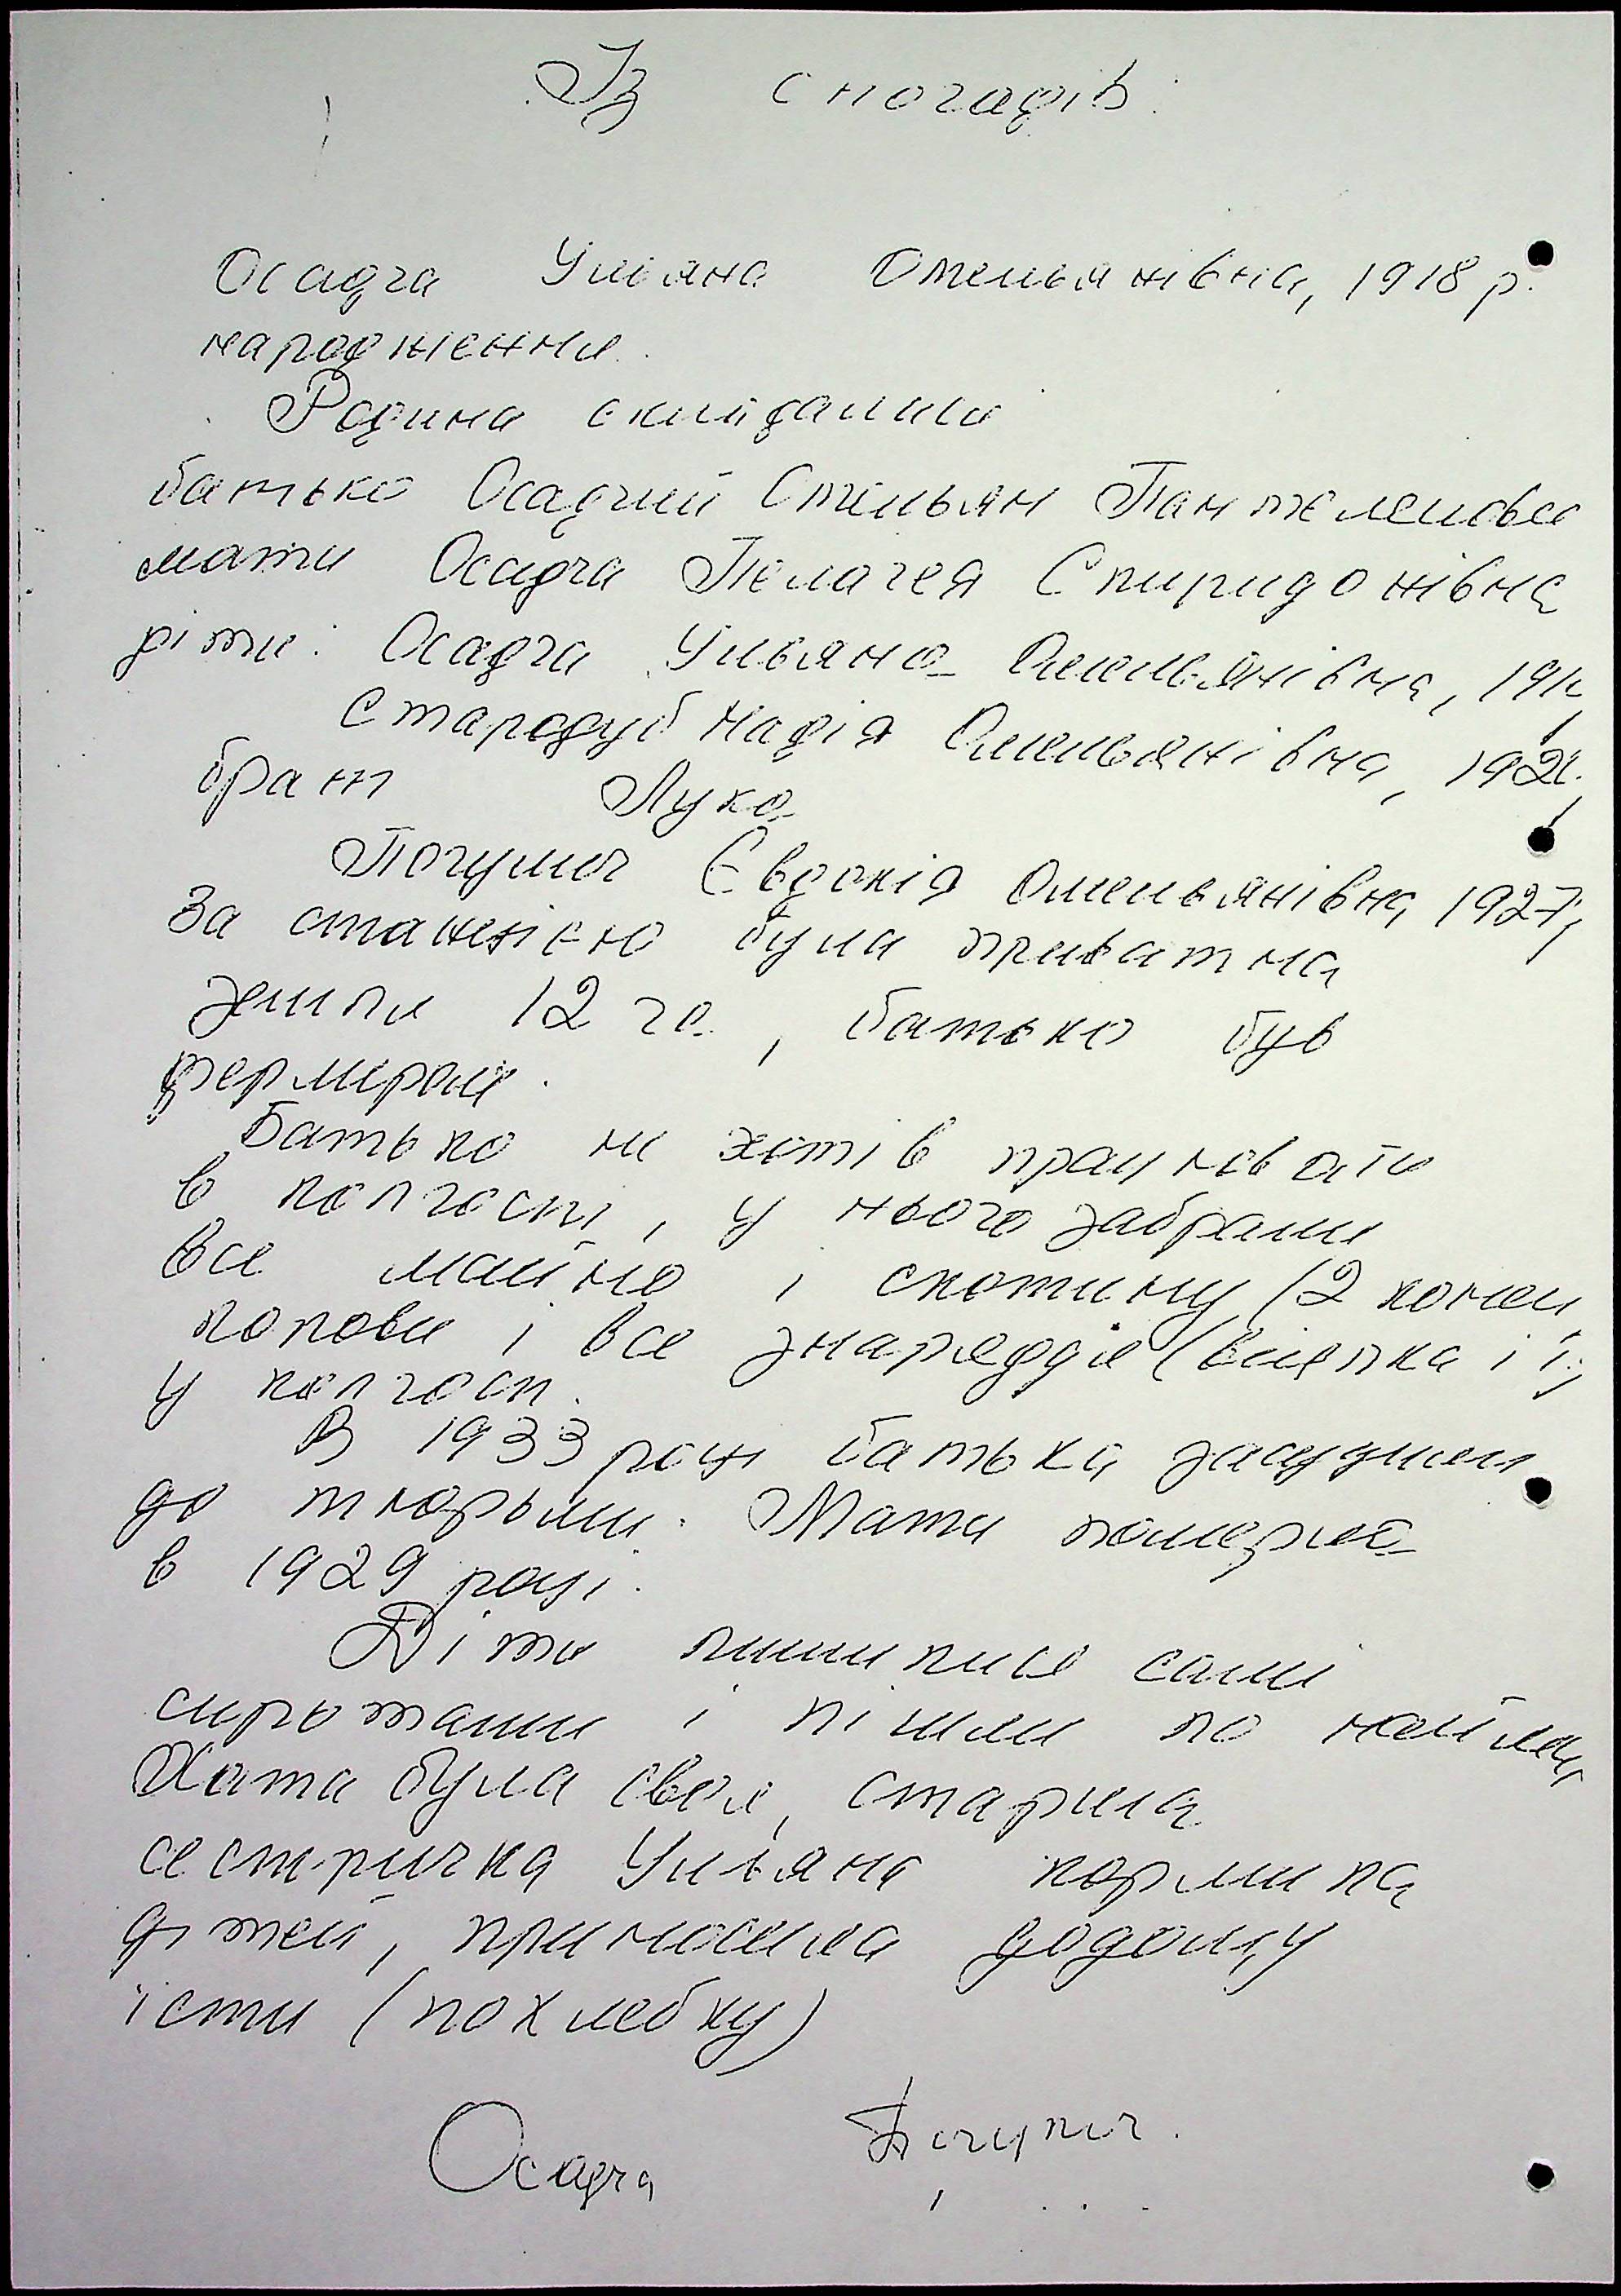 Із спогадів:
Осадча Уляна Омельянівна, 1918 р.
народження.
Родина складалися
батько Осадчий Омельян Пантелеймов
мати Осадча Пелагея Спиридонівна
діти: Осадча Ульяна Омельянівна,
Стародуб Надія Омельянівна,
брат Лука
Евдокія Омельянівна, 1927,
За станцією була приватна
земля 12 га., батько був
ферміром.
Батько не хотів працювати
в колгоспі, у нього забрали
все майно і скотину (2 коней,
корови і все знаряддя (віялка і ї.,
у колгосп.
В 1933 році батька засудили
до тюрьми. Мати померла
в 1929 році.
Діти лишились самі
сиротами і пішли по найма,
Хата була своя, старша
сестричка Ульяна кормила
дітей, приносила додому
їсти (похлебку)
Осадча